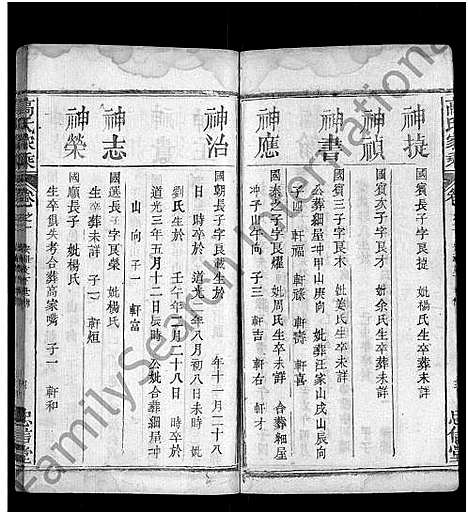 神捷
國賓長子字艮捷 妣楊氏生卒葬未詳
神禎
國賓次子字艮才 妣余氏生卒葬未詳
神書
國賓三子字艮木 妣姜氏生卒未詳
公葬細屋冲甲山庚向 妣葬汪家山戌山辰向
子四 軒福 軒祿 軒壽 軒喜
神應
國泰之子字艮燿 妣周氏生卒未詳 合葬細屋
冲子山午向 子三 軒吉 軒右 軒才
神治
國朝長子字艮 生於 年十一月二十八
日 時卒於道光 年八月初八日未時 妣
劉氏生於 壬午年二月二十八 時卒於
道光三年五月十二日辰時 公妣合葬細屋冲
山 向 子一 軒富
神志
國選長子字艮榮 妣楊氏
生卒葬未詳 子一 軒烜
神榮
國順長子 妣楊氏
生卒俱失考合葬高家嘴 子一 軒和
高氏家乘
卷之
忠信堂
FamilySearch International